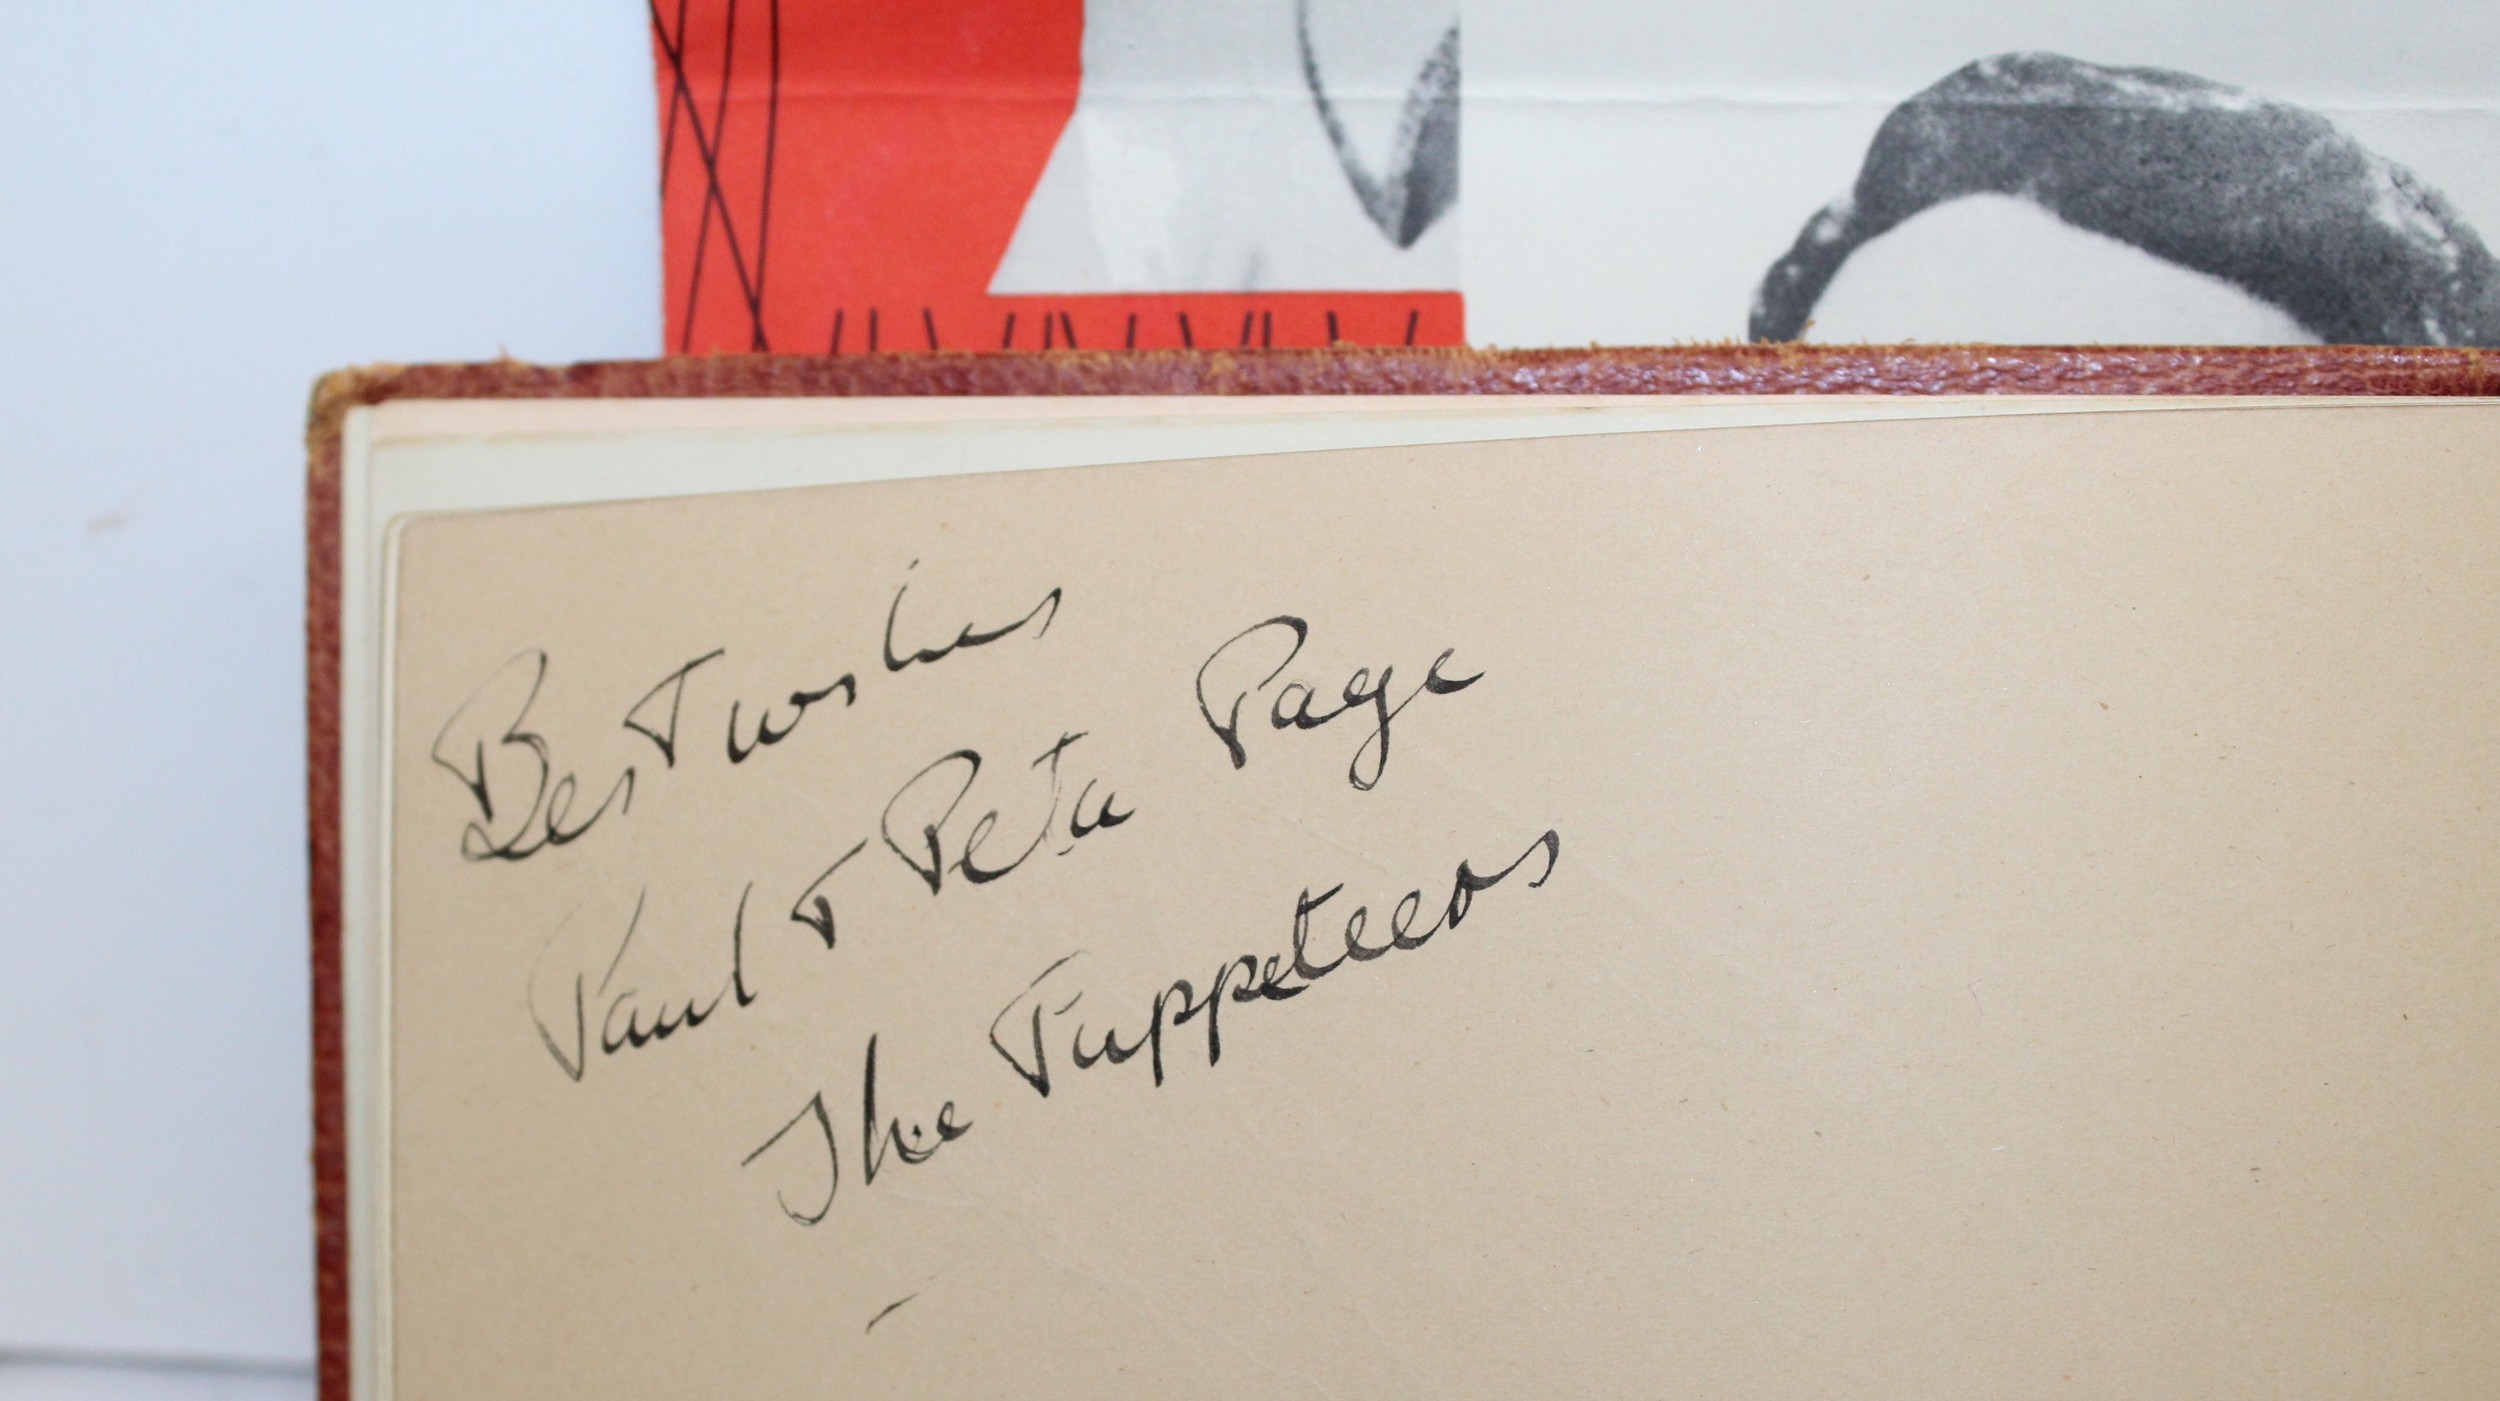 Best wishes
Paul + Peta Page
The Puppeteers